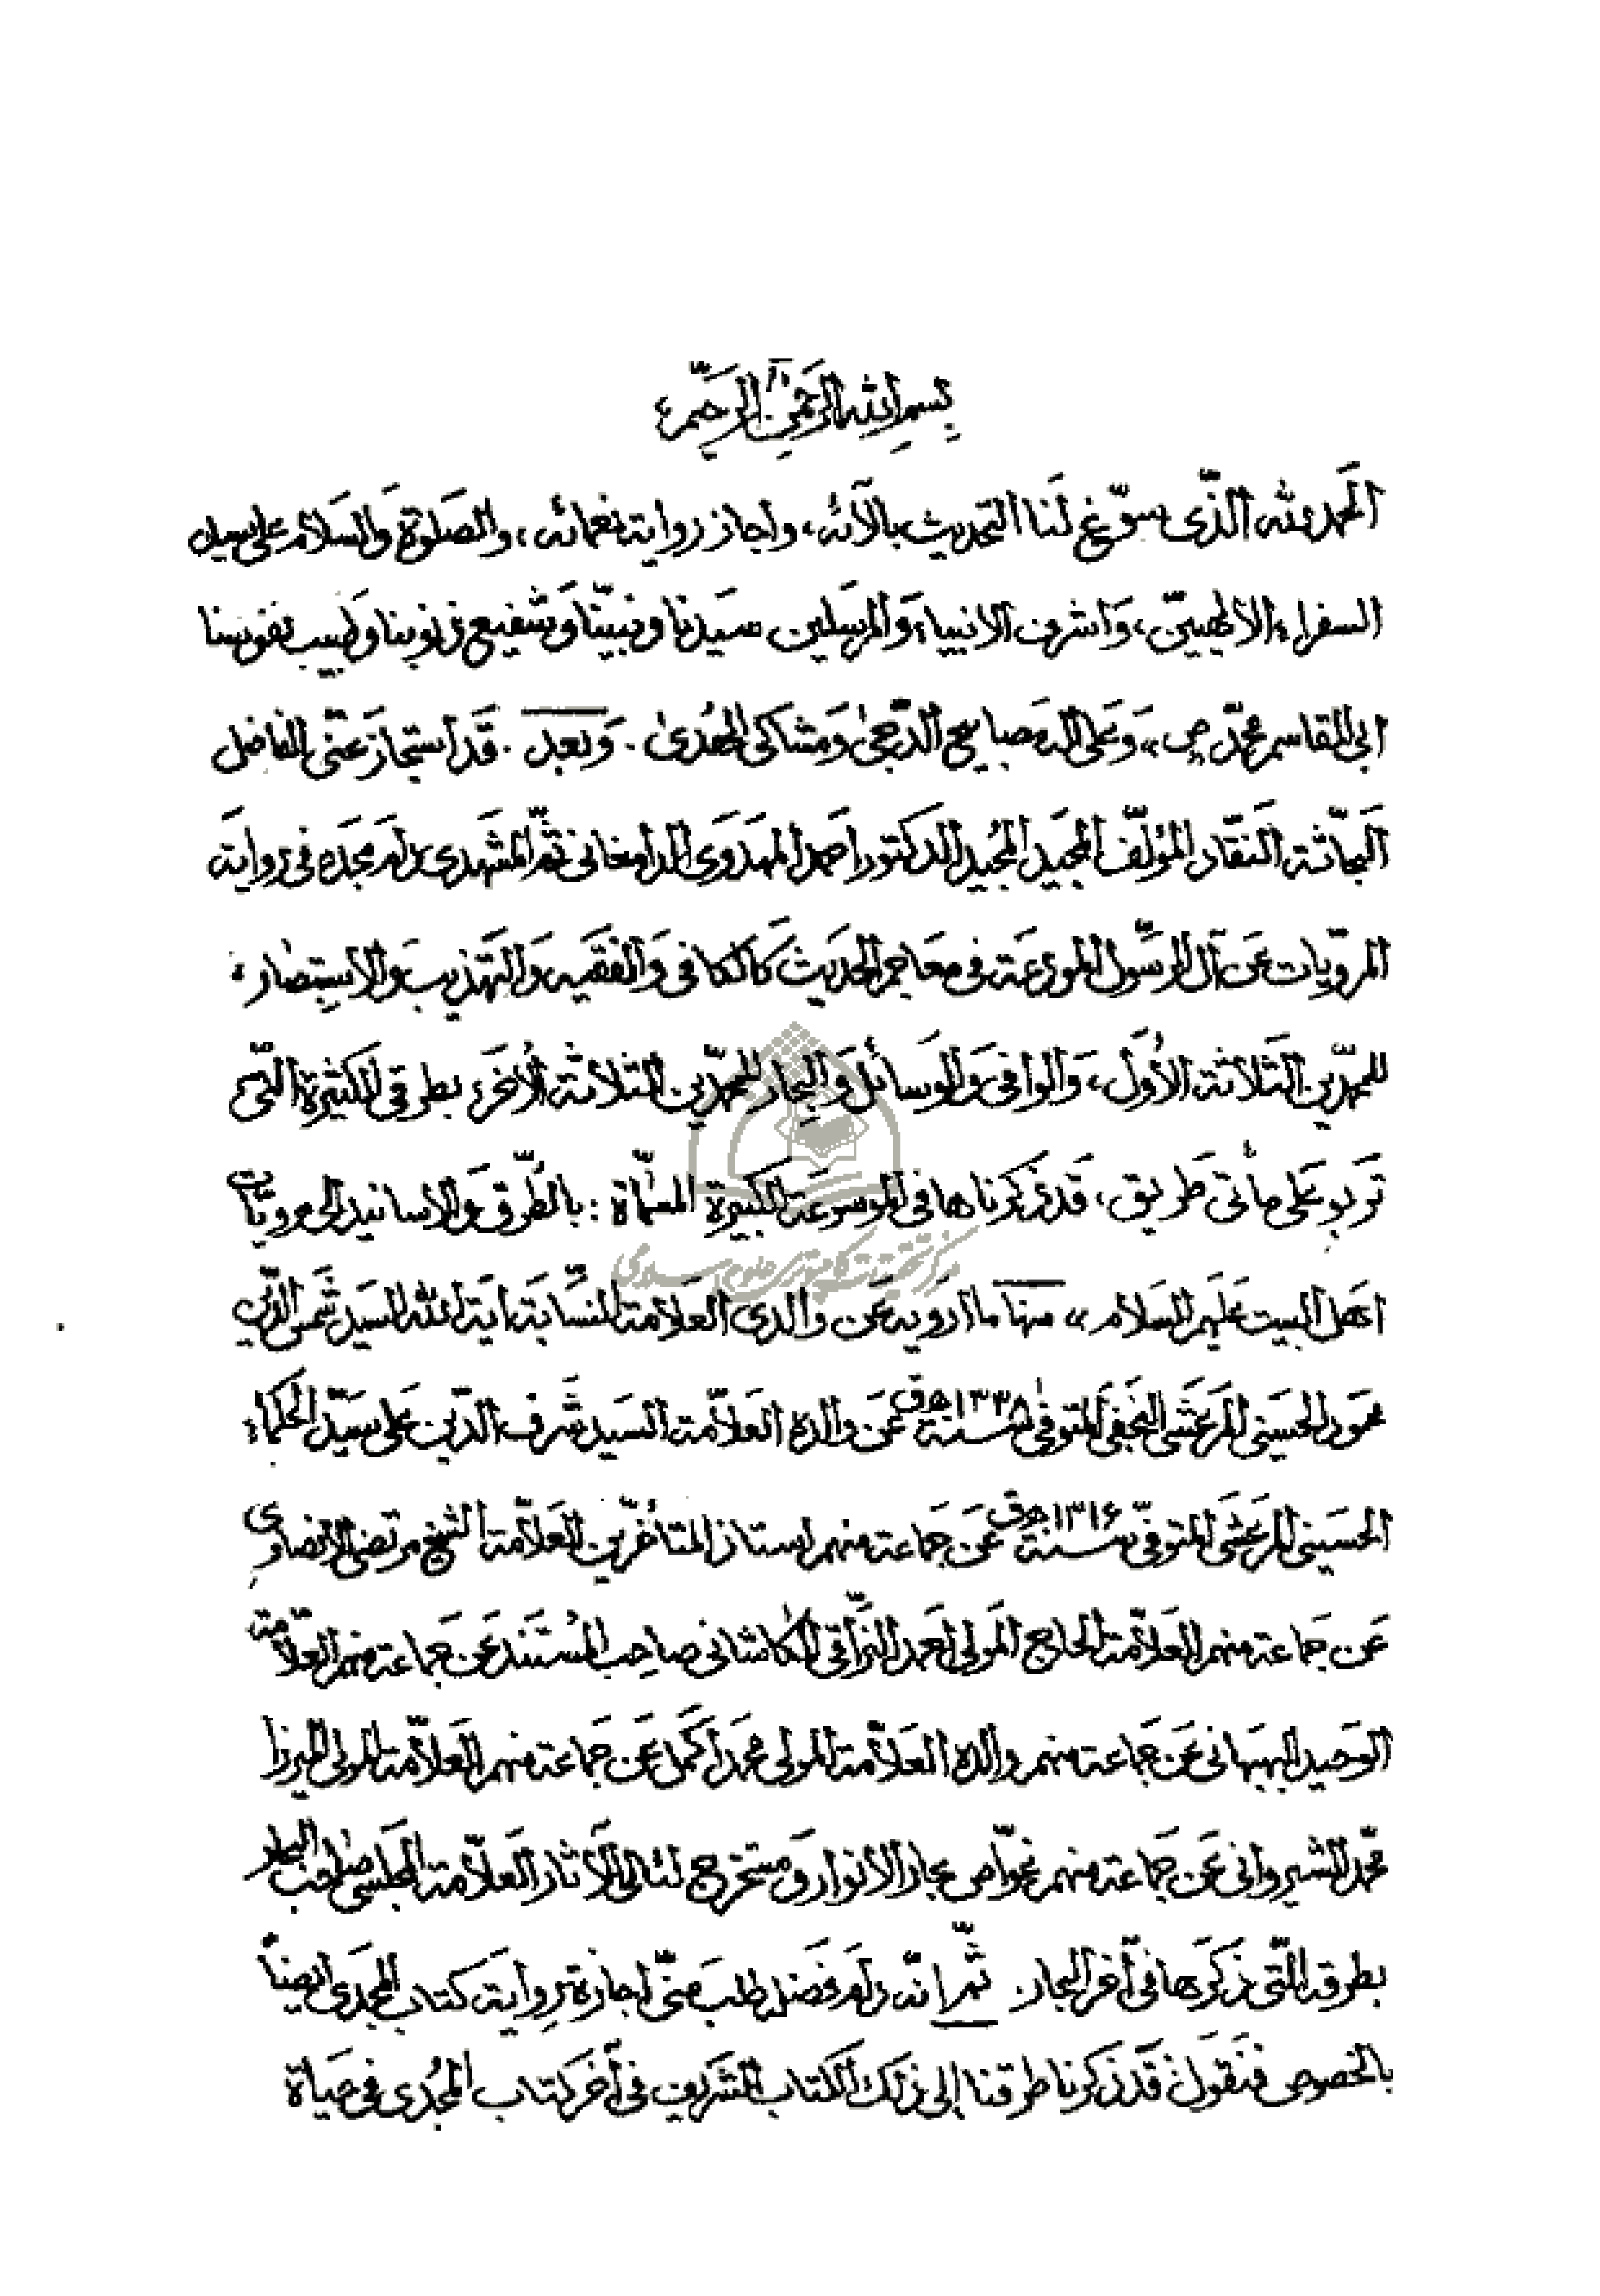 بسم الله الرحمن الرحيم
الحمد لله الذّی سوّغ لنا التحديث بآلائه، واجاز رواية نعمائه، والصلوة والسلام علی سيد
السفراء الألهيّين، واشرف الانبياء والمرسلين سيدنا ونبيّنا وشفيع ذنوبنا وطبيب نفوسنا
ابی القاسم محمّد ص، وعلی آله مصابيح الدّجیٰ ومشاکی الهُدیٰ. وبعد. قد استجاز عنّی الفاضل
البحّاثة النقّاد المؤلّف المجيد المجيد الدکتور احمد المهدوی الدامغانی ثمّ المشهدی دام مجده فی رواية
المرويّات عن آل الرسّول المودعة فی معاجم الحديث کالکافی والفقيه والتهذيب والاستبصار،
للمحمّدين الثلاثة الاُوَل، والوافی والوسائل والبحار للمحمّدين الثلاثة الاُخر، بطرقی الکثيرة التّی
تربو علی مأتی طريق، قد ذکرناها فی الموسوعة الکبيرة المسمّاة : بالطّرق والاسانيد الی مرويّات
اهل البيت عليهم السلام، منها ما ارويه عن والدی العلّامة النسّابة آية الله السيد شمس الدّين
محمود الحسينی المرعشی النجفی المتوفّی سنة ۱۳۳۸ ه‍ ق عن والده العلاّمة السيد شرف الدّين علی سيّد الحکماء
الحسينی المرعشی المتوفّی سنة ۱۳۱۶ ه‍ ق عن جماعة منهم استاذ المتأخّرين العلاّمة الشيخ مرتضی الانصاری
عن جماعة منهم العلاّمة الحاج المولی احمد النّراقی الکاشانی صاحب المُستند عن جماعة منهم العلّامة
الوحيد البهبهانی عن جماعة منهم والده العلاّمة المولی محمد اکمل عن جماعة منهم العلاّمة المولی الميرزا
محمّد الشيروانی عن جماعة منهم غوّاص بحار الانوار ومستخرج لئالی الآثار العلّامة المجلسی صاحب البحار
بطرقه التّی ذکرها فی آخر البحار. ثمّ انّه دام فضله طلب منّی اجازة رواية کتاب المجدی ايضاً
بالخصوص فنقول قد ذکرنا طرقنا إلی ذلك الکتاب الشريف فی آخر کتاب المجدی فی حياة
مرکز تحقیقات کامپیوتری علوم اسلامی